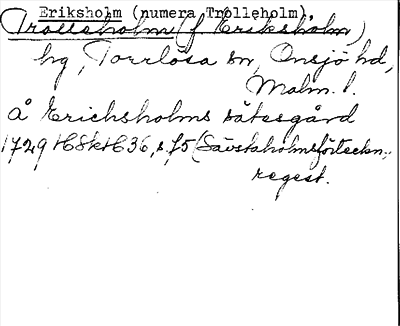 Eriksholm (numera Trolleholm),
Trolleholm (f Eriksholm)
hg, Torrlösa sn, Onsjö hd,
Malm. l.
å Erichsholms sätesgård
1729 HSkH 36, s 75 (Sävstaholmsförteckn.,
regest.